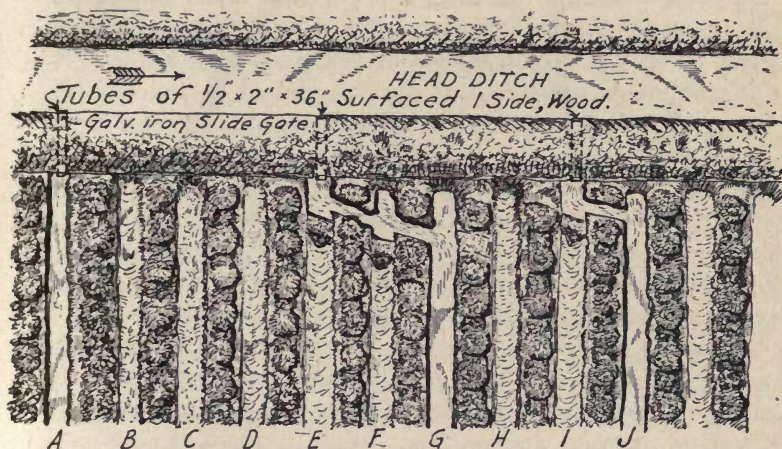 HEAD DITCH
Tubes of 1/2" × 2" × 36" Surfaced 1 Side, Wood.
Galv. iron Slide Gate
A B C D E F G H I J